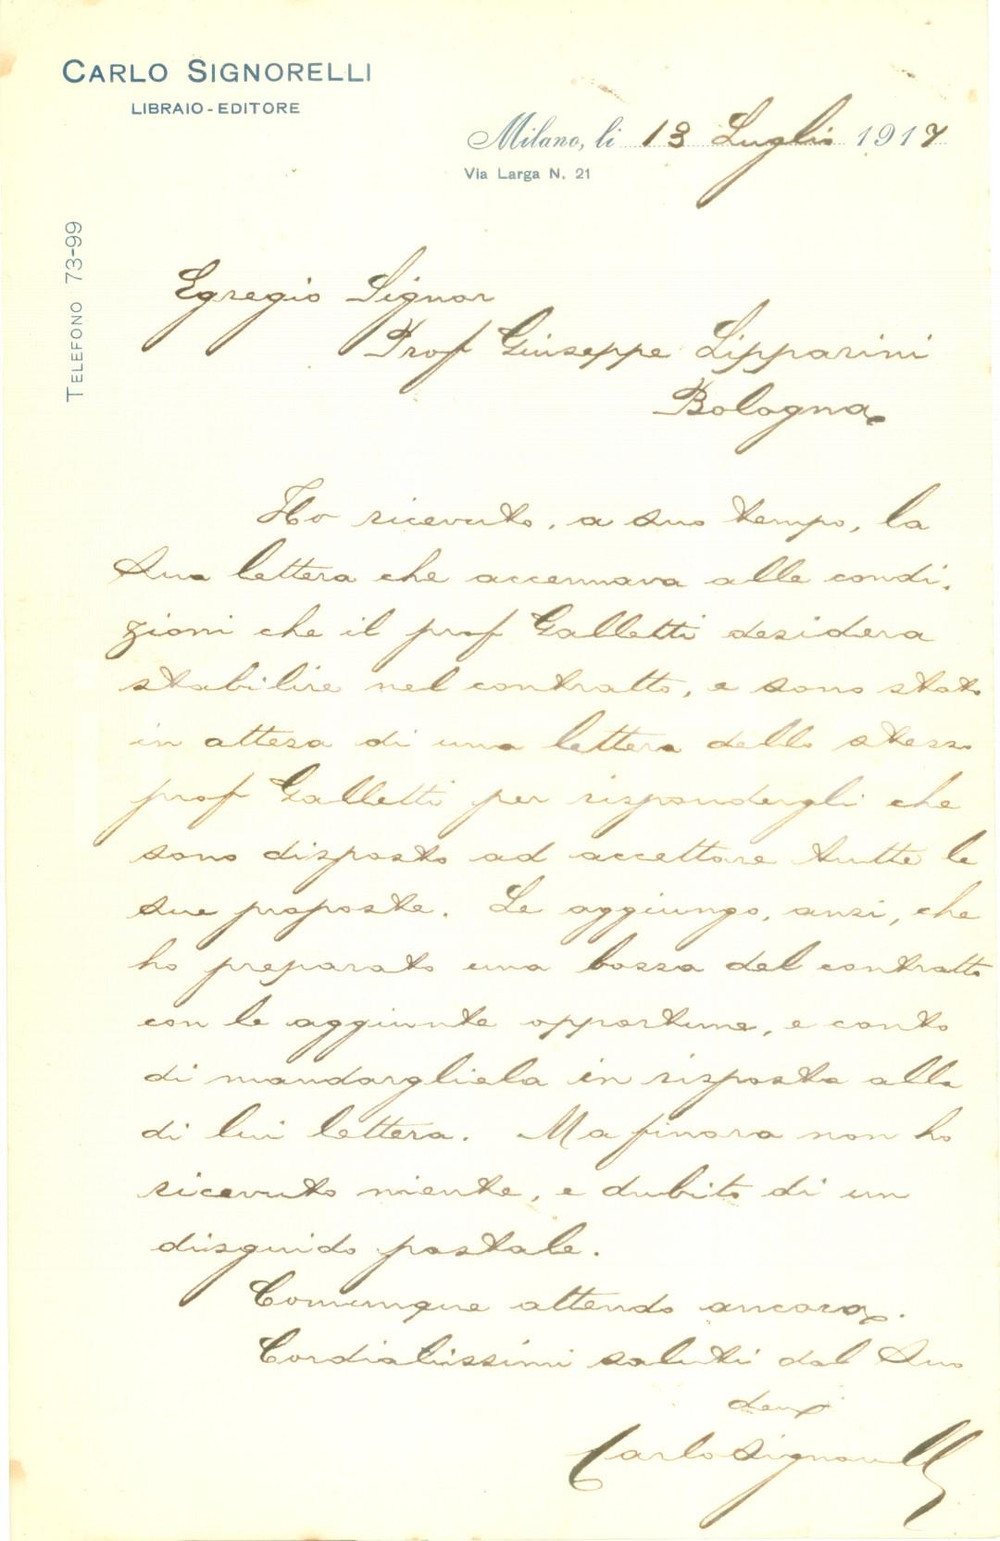 CARLO SIGNORELLI
LIBRAIO - EDITORE
Milano, li 13 Luglio 1917
Via Larga N. 21
TELEFONO 73-99
Egregio Signor
Prof Giuseppe Lipparini
Bologna
Ho ricevuto, a suo tempo, la
Sua lettera che accennava alle condi-
zioni che il prof Galletti desidera
stabilire nel contratto, e sono stato
in attesa di una lettera dello stesso
prof Galletti per rispondergli che
sono disposto ad accettare tutte le
sue proposte. Le aggiungo, anzi, che
ho preparato una bozza del contratto
con le aggiunte opportune, e conto
di mandargliela in risposta alla
di lui lettera. Ma finora non ho
ricevuto niente, e dubito di un
disguido postale.
Comunque attendo ancora.
Cordialissimi saluti dal Suo
Carlo Signorelli